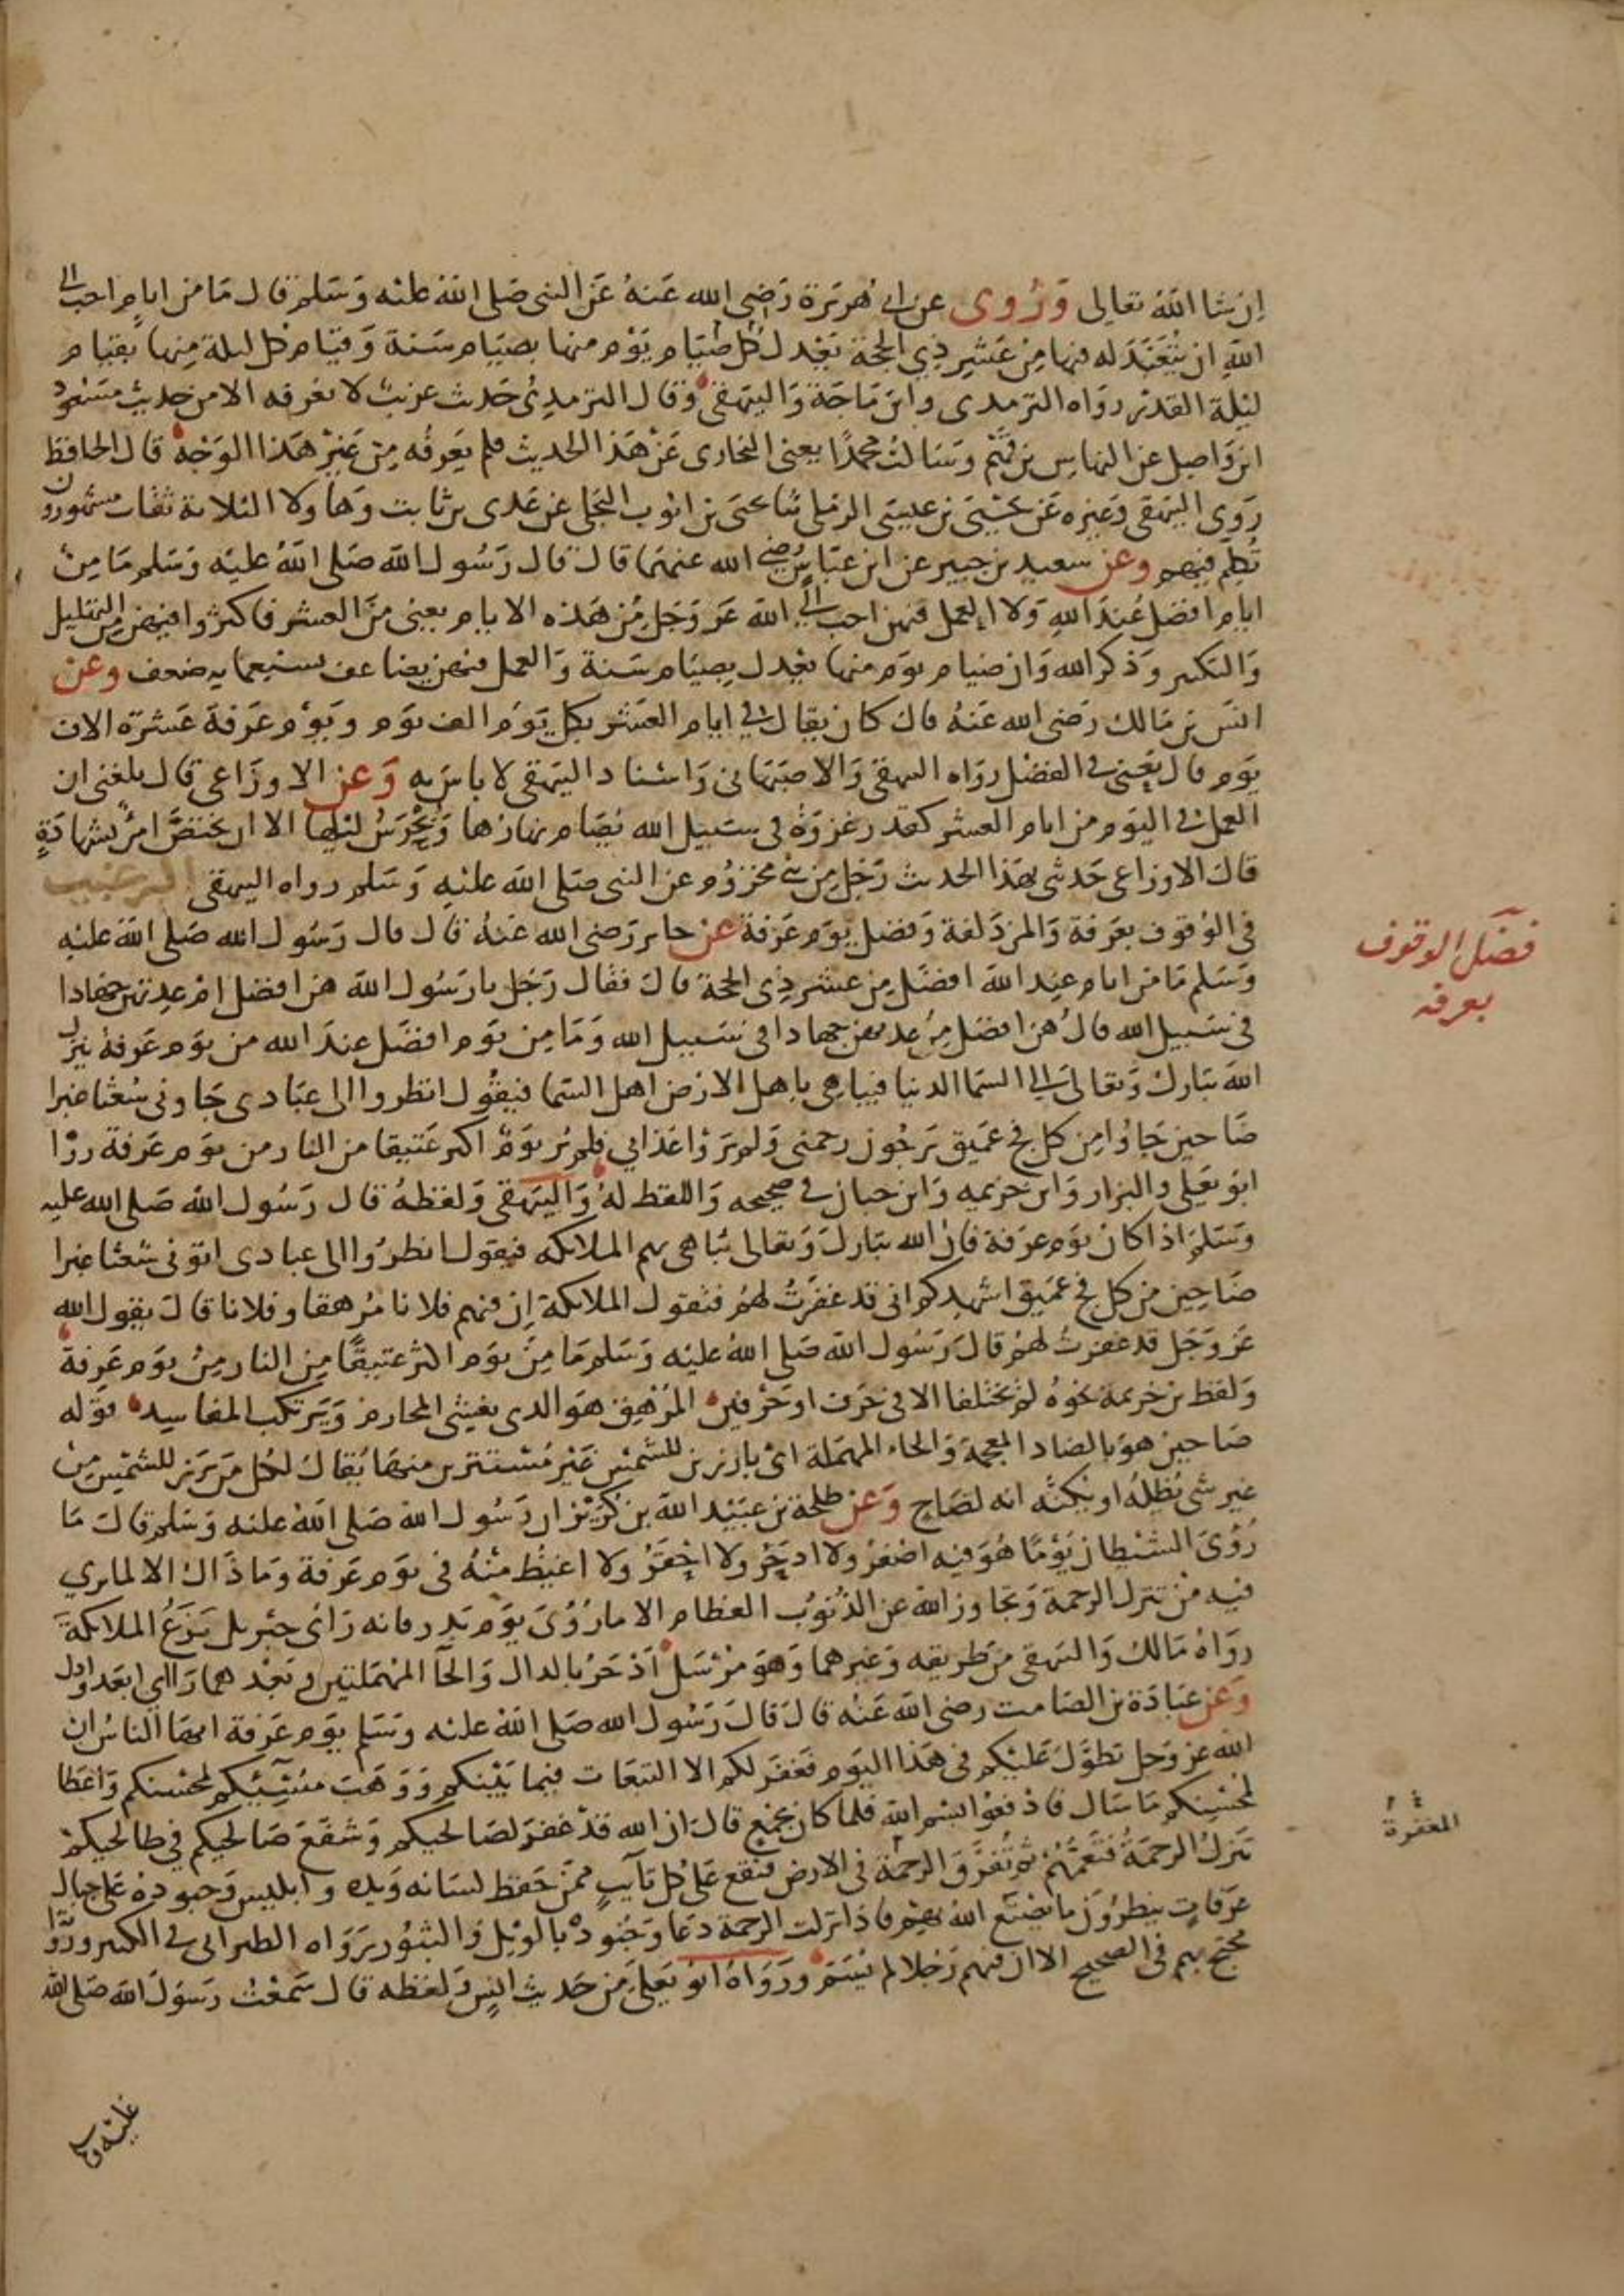 ان شا الله تعالى وروى عن ابي هريرة رضي الله عنه عن النبي صلى الله عليه وسلم قال ما من ايام احب الى
الله ان يتعبد له فيها من عشر ذي الحجة يعدل كل صيام يوم منها بصيام سنة وقيام كل ليلة منها بقيام
ليلة القدر رواه الترمدى وابن ماجة والبيهقي وقال الترمدي حديث غريب لا نعرفه الا من حديث مسعود
ابن واصل عن النهاس بن قهم وسالت محمدًا يعني البخارى عن هذا الحديث فلم يعرفه من غير هذا الوجه قال الحافظ
روى البيهقي وغيره عن يحيى بن عيسى الرملي ثنا يحيى بن ايوب البجلي عن عدى بن ثابت وهاولا الثلاثة ثقات مشهورون
تكلم فيهم وعن سعيد بن جبير عن ابن عباس رضي الله عنهما قال قال رسول الله صلى الله عليه وسلم ما من
ايام افضل عند الله ولا العمل فيهن احب الى الله عز وجل من هذه الايام يعني من العشر فاكثروا فيهن من التهليل
والتكبير وذكر الله وان صيام يوم منها يعدل بصيام سنة والعمل فيهن يضاعف بسبعماية ضعف وعن
انس بن مالك رضي الله عنه قال كان يقال في ايام العشر بكل يوم الف يوم ويوم عرفة عشرة الاف
يوم قال يعني في الفضل رواه البيهقي والاصبهاني واسناد البيهقي لا باس به وعن الاوزاعي قال بلغني ان
العمل في اليوم من ايام العشر كقدر غزوة في سبيل الله يصام نهارها ويحرس ليلها الا ان يختص امرؤ بشهادة
قال الاوزاعي حدثني بهذا الحديث رجل من بني مخزوم عن النبي صلى الله عليه وسلم رواه البيهقي الترغيب
في الوقوف بعرفة والمزدلفة وفضل يوم عرفة عن جابر رضي الله عنه قال قال رسول الله صلى الله عليه
وسلم ما من ايام عند الله افضل من عشر ذي الحجة قال فقال رجل يا رسول الله هن افضل ام عدتهن جهادا
في سبيل الله قال هن افضل من عدتهن جهادا في سبيل الله وما من يوم افضل عند الله من يوم عرفة ينزل
الله تبارك وتعالى الى السما الدنيا فيباهي باهل الارض اهل السما فيقول انظروا الى عبادى جاوني شعثا غبرا
ضاحين جاوا من كل فج عميق يرجون رحمتى ولم يروا عذابي فلم ير يوم اكثر عتيقا من النار من يوم عرفة رواه
ابو يعلى والبزار وابن خزيمه وابن حبان في صحيحه واللفظ له والبيهقي ولفظه قال رسول الله صلى الله عليه
وسلم اذا كان يوم عرفة فان الله تبارك وتعالى يباهي بهم الملائكه فيقول انظروا الى عبادى اتونى شعثا غبرا
ضاحين من كل فج عميق اشهدكم اني قد غفرت لهم فتقول الملائكة ان فيهم فلانا مرهقا وفلانا قال يقول الله
عز وجل قد غفرت لهم قال رسول الله صلى الله عليه وسلم ما من يوم اكثر عتيقًا من النار من يوم عرفة
ولفظ بن خزيمة نحوه لم يختلفا الا في حرف او حرفين المرهق هو الدى يغشى المحارم ويرتكب المفاسد قوله
ضاحين هو بالضاد المعجمة والحاء المهملة اى بارزين للشمس غير مستترين منها يقال لكل من برز للشمس من
غير شى يظله او يكنه انه لضاح وعن طلحة بن عبيد الله بن كريز ان رسول الله صلى الله عليه وسلم قال ما
رؤى الشيطان يومًا هو فيه اصغر ولا ادحر ولا احقر ولا اغيظ منه في يوم عرفة وما ذاك الا لما يرى
فيه من تنزل الرحمة وتجاوز الله عن الذنوب العظام الا ما رؤى يوم بدر فانه راى جبريل يزع الملائكة
رواه مالك والبيهقي من طريقه وغيرهما وهو مرسل ادحر بالدال والحا المهملتين وبعدهما را اي ابعد واذل
وعن عبادة بن الصامت رضي الله عنه قال قال رسول الله صلى الله عليه وسلم يوم عرفة ايها الناس ان
الله عز وجل تطول عليكم في هذا اليوم فغفر لكم الا التبعات فيما بينكم ووهب مسيئكم لمحسنكم واعطا
لمحسنكم ما سال فادفعوا بسم الله فلما كان بجمع قال ان الله قد غفر لصالحيكم وشفع صالحيكم في طالحيكم
تنزل الرحمة فتعمهم ثم تفرق الرحمة في الارض فتقع على كل تآيب ممن حفظ لسانه ويده وابليس وجنوده على جبال
عرفات ينظرون ما يصنع الله بهم فاذا نزلت الرحمة دعا وجنوده بالويل والثبور رواه الطبراني في الكبير ورواته
محتج بهم في الصحيح الا ان فيهم رجلا لم يسم ورواه ابو يعلى من حديث انس ولفظه قال سمعت رسول الله صلى الله
فضل الوقوف
بعرفه
المغفرة
عليه و